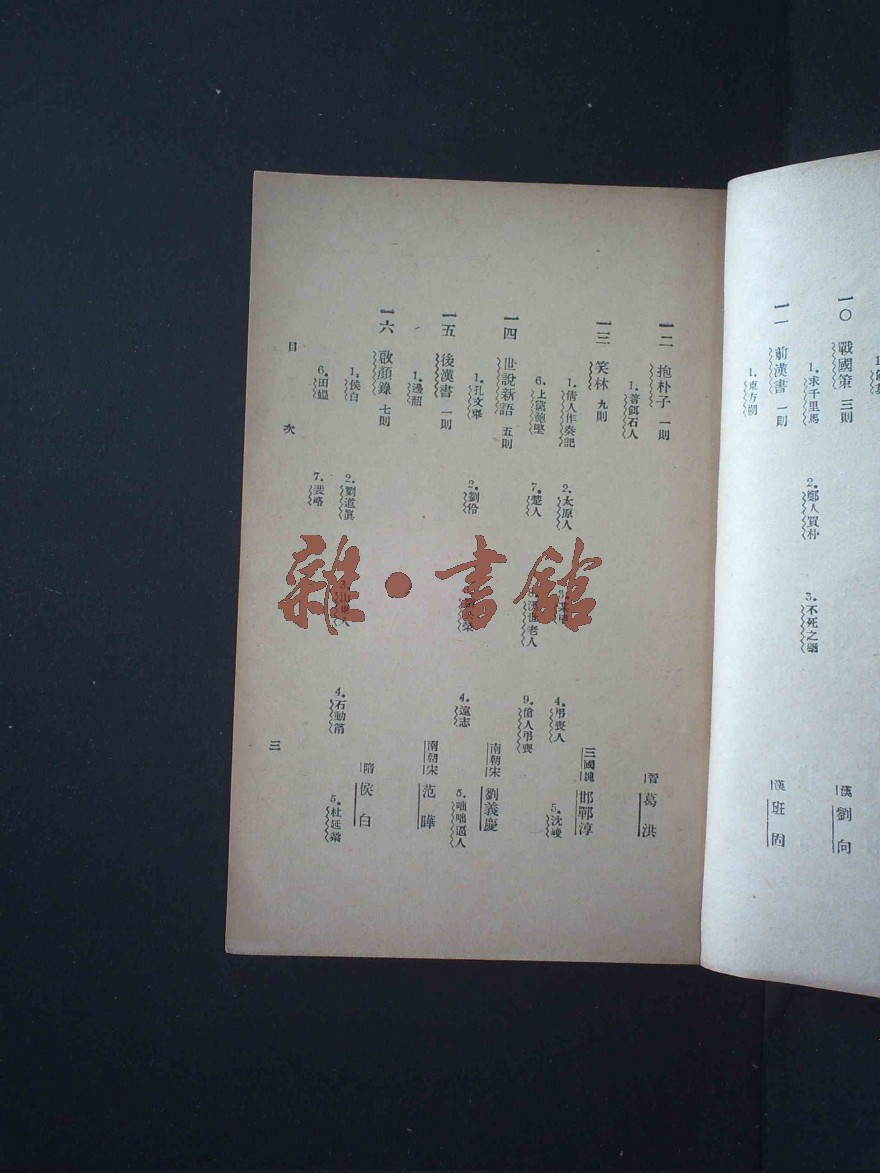 一〇 戰國策 三則 漢 劉向
1. 求千里馬 2. 鄭人買朴 3. 不死之藥
一一 前漢書 一則 漢 班固
1. 東方朔
一二 抱朴子 一則 晉 葛洪
1. 著餌石人
一三 笑林 九則 三國魏 邯鄲淳
1. 倩人作奏記 2. 太原人 4. 弔喪人 5. 沈峻
6. 上黨鮑堅 7. 楚人 漢世老人 9. 傖人弔喪
一四 世說新語 五則 南朝宋 劉義慶
1. 孔文舉 2. 劉伶 4. 遠志 5. 咄咄逼人
一五 後漢書 一則 南朝宋 范曄
1. 邊韶
一六 啟顏錄 七則 隋 侯白
1. 侯白 2. 劉道眞 3. 山東人 4. 石動筩 5. 杜延業
6. 田媼 7. 裴略
目次
三
雜·書館